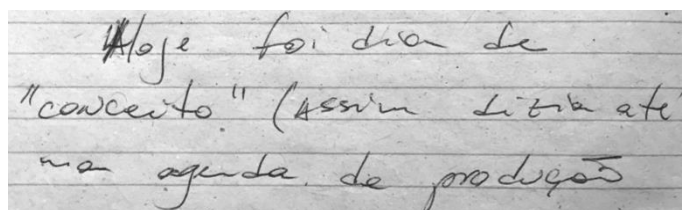 Hoje foi dia de
"conceito" (assim dizia até
na agenda de produção